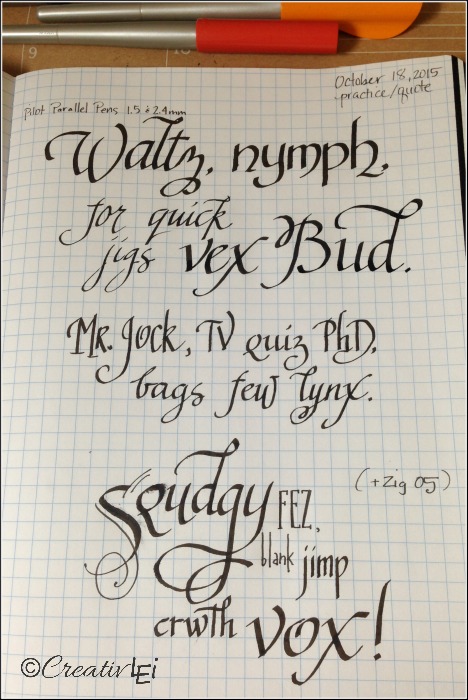 October 18, 2015
practice/quote
Pilot Parallel Pens 1.5 & 2.4mm
Waltz, nymph,
for quick
jigs vex Bud.
Mr. Jock, TV quiz PhD,
bags few lynx.
(+Zig 05)
Squdgy FEZ,
blank jimp
crwth vox!
©CreativLEi